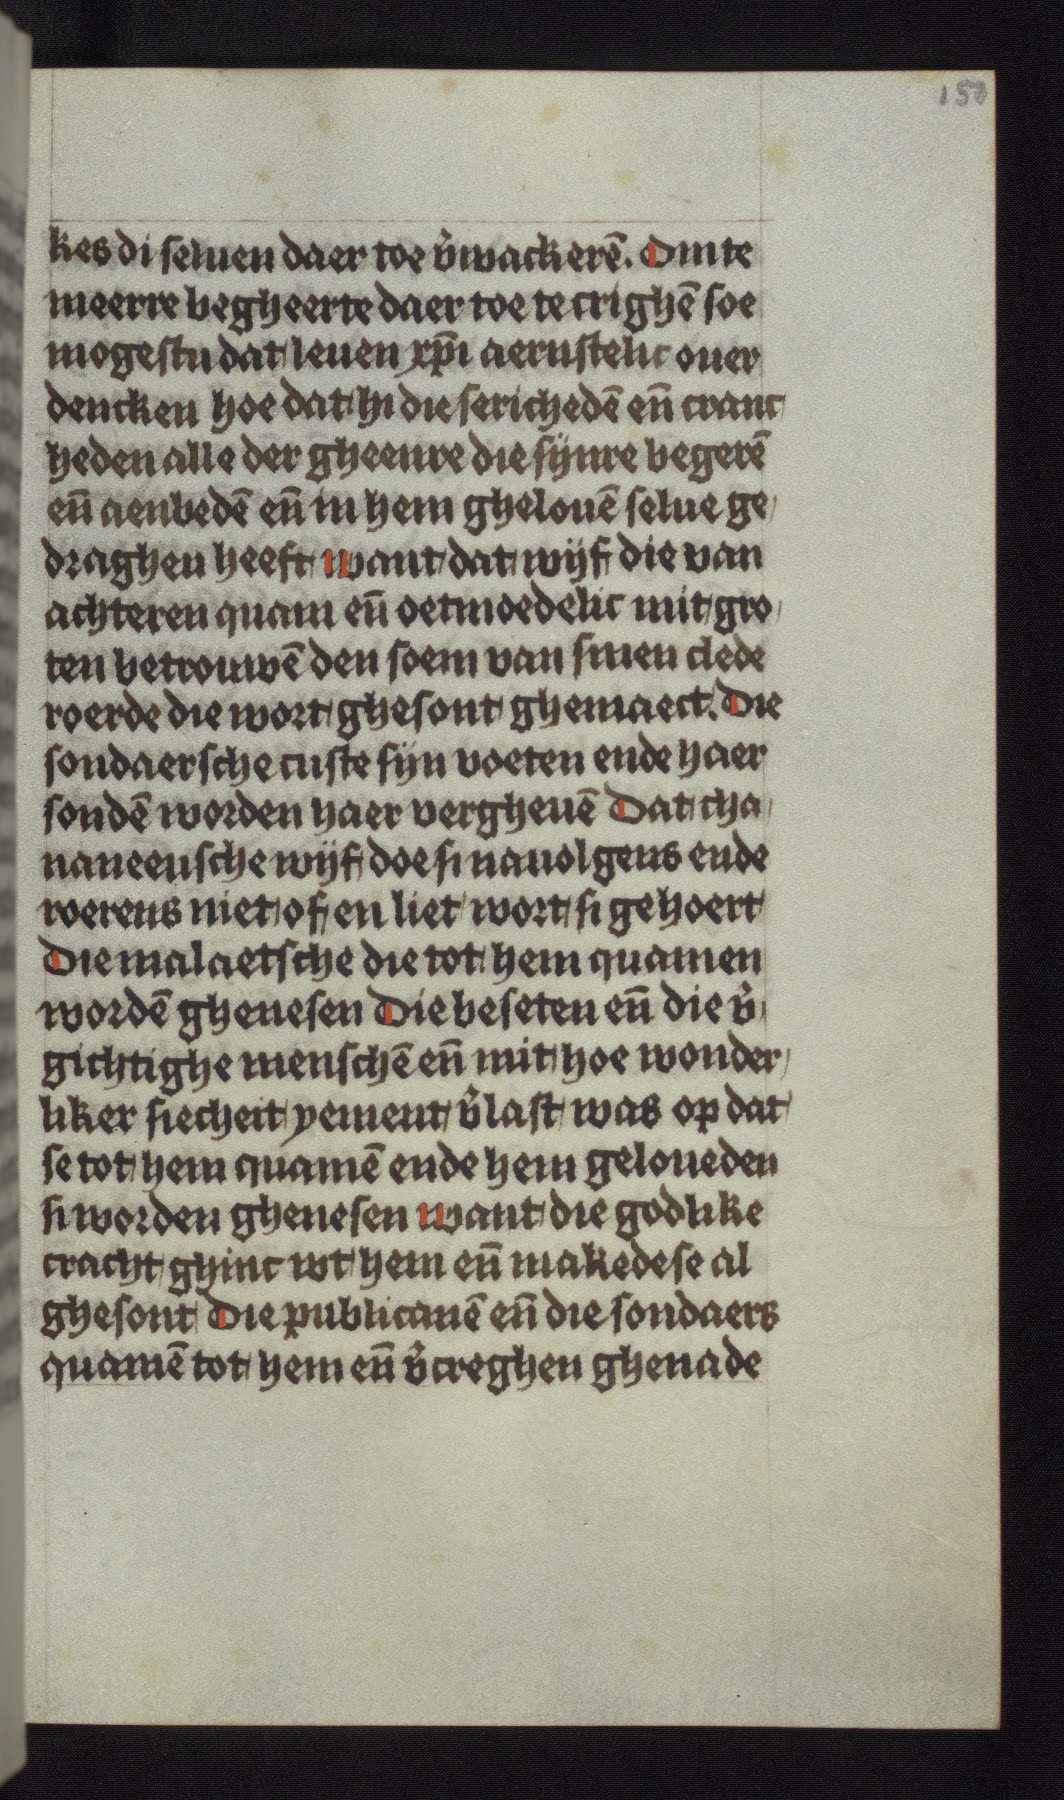 150
kes di seluen daer toe v̉wackerē. Om te
meerre begheerte daer toe te crighē soe
mogestu dat leuen xp̄i aernstelic ouer
dencken hoe dat hi die serichedē en̄ cranc
heden alle der gheenre die sijnre begerē
en̄ aenbedē en̄ in hem ghelouē selue ge
draghen heeft want dat wijf die van
achteren quam en̄ oetmoedelic mit gro
ten betrouwē den soem van sinen clede
roerde die wort ghesont ghemaect. Die
sondaersche custe sijn voeten ende haer
sondē worden haer vergheuē Dat cha
naneensche wijf doe si nauolgens ende
roerens niet of en liet wort si gehoert
Die malaetsche die tot hem quamen
wordē ghenesen Die beseten en̄ die v̉
gichtighe menschē en̄ mit hoe wonder
liker siecheit yement v̉last was op dat
se tot hem quamē ende hem geloueden
si worden ghenesen want die godlike
cracht ghinc wt hem en̄ makedese al
ghesont Die publicanē en̄ die sondaers
quamē tot hem en̄ v̉creghen ghenade